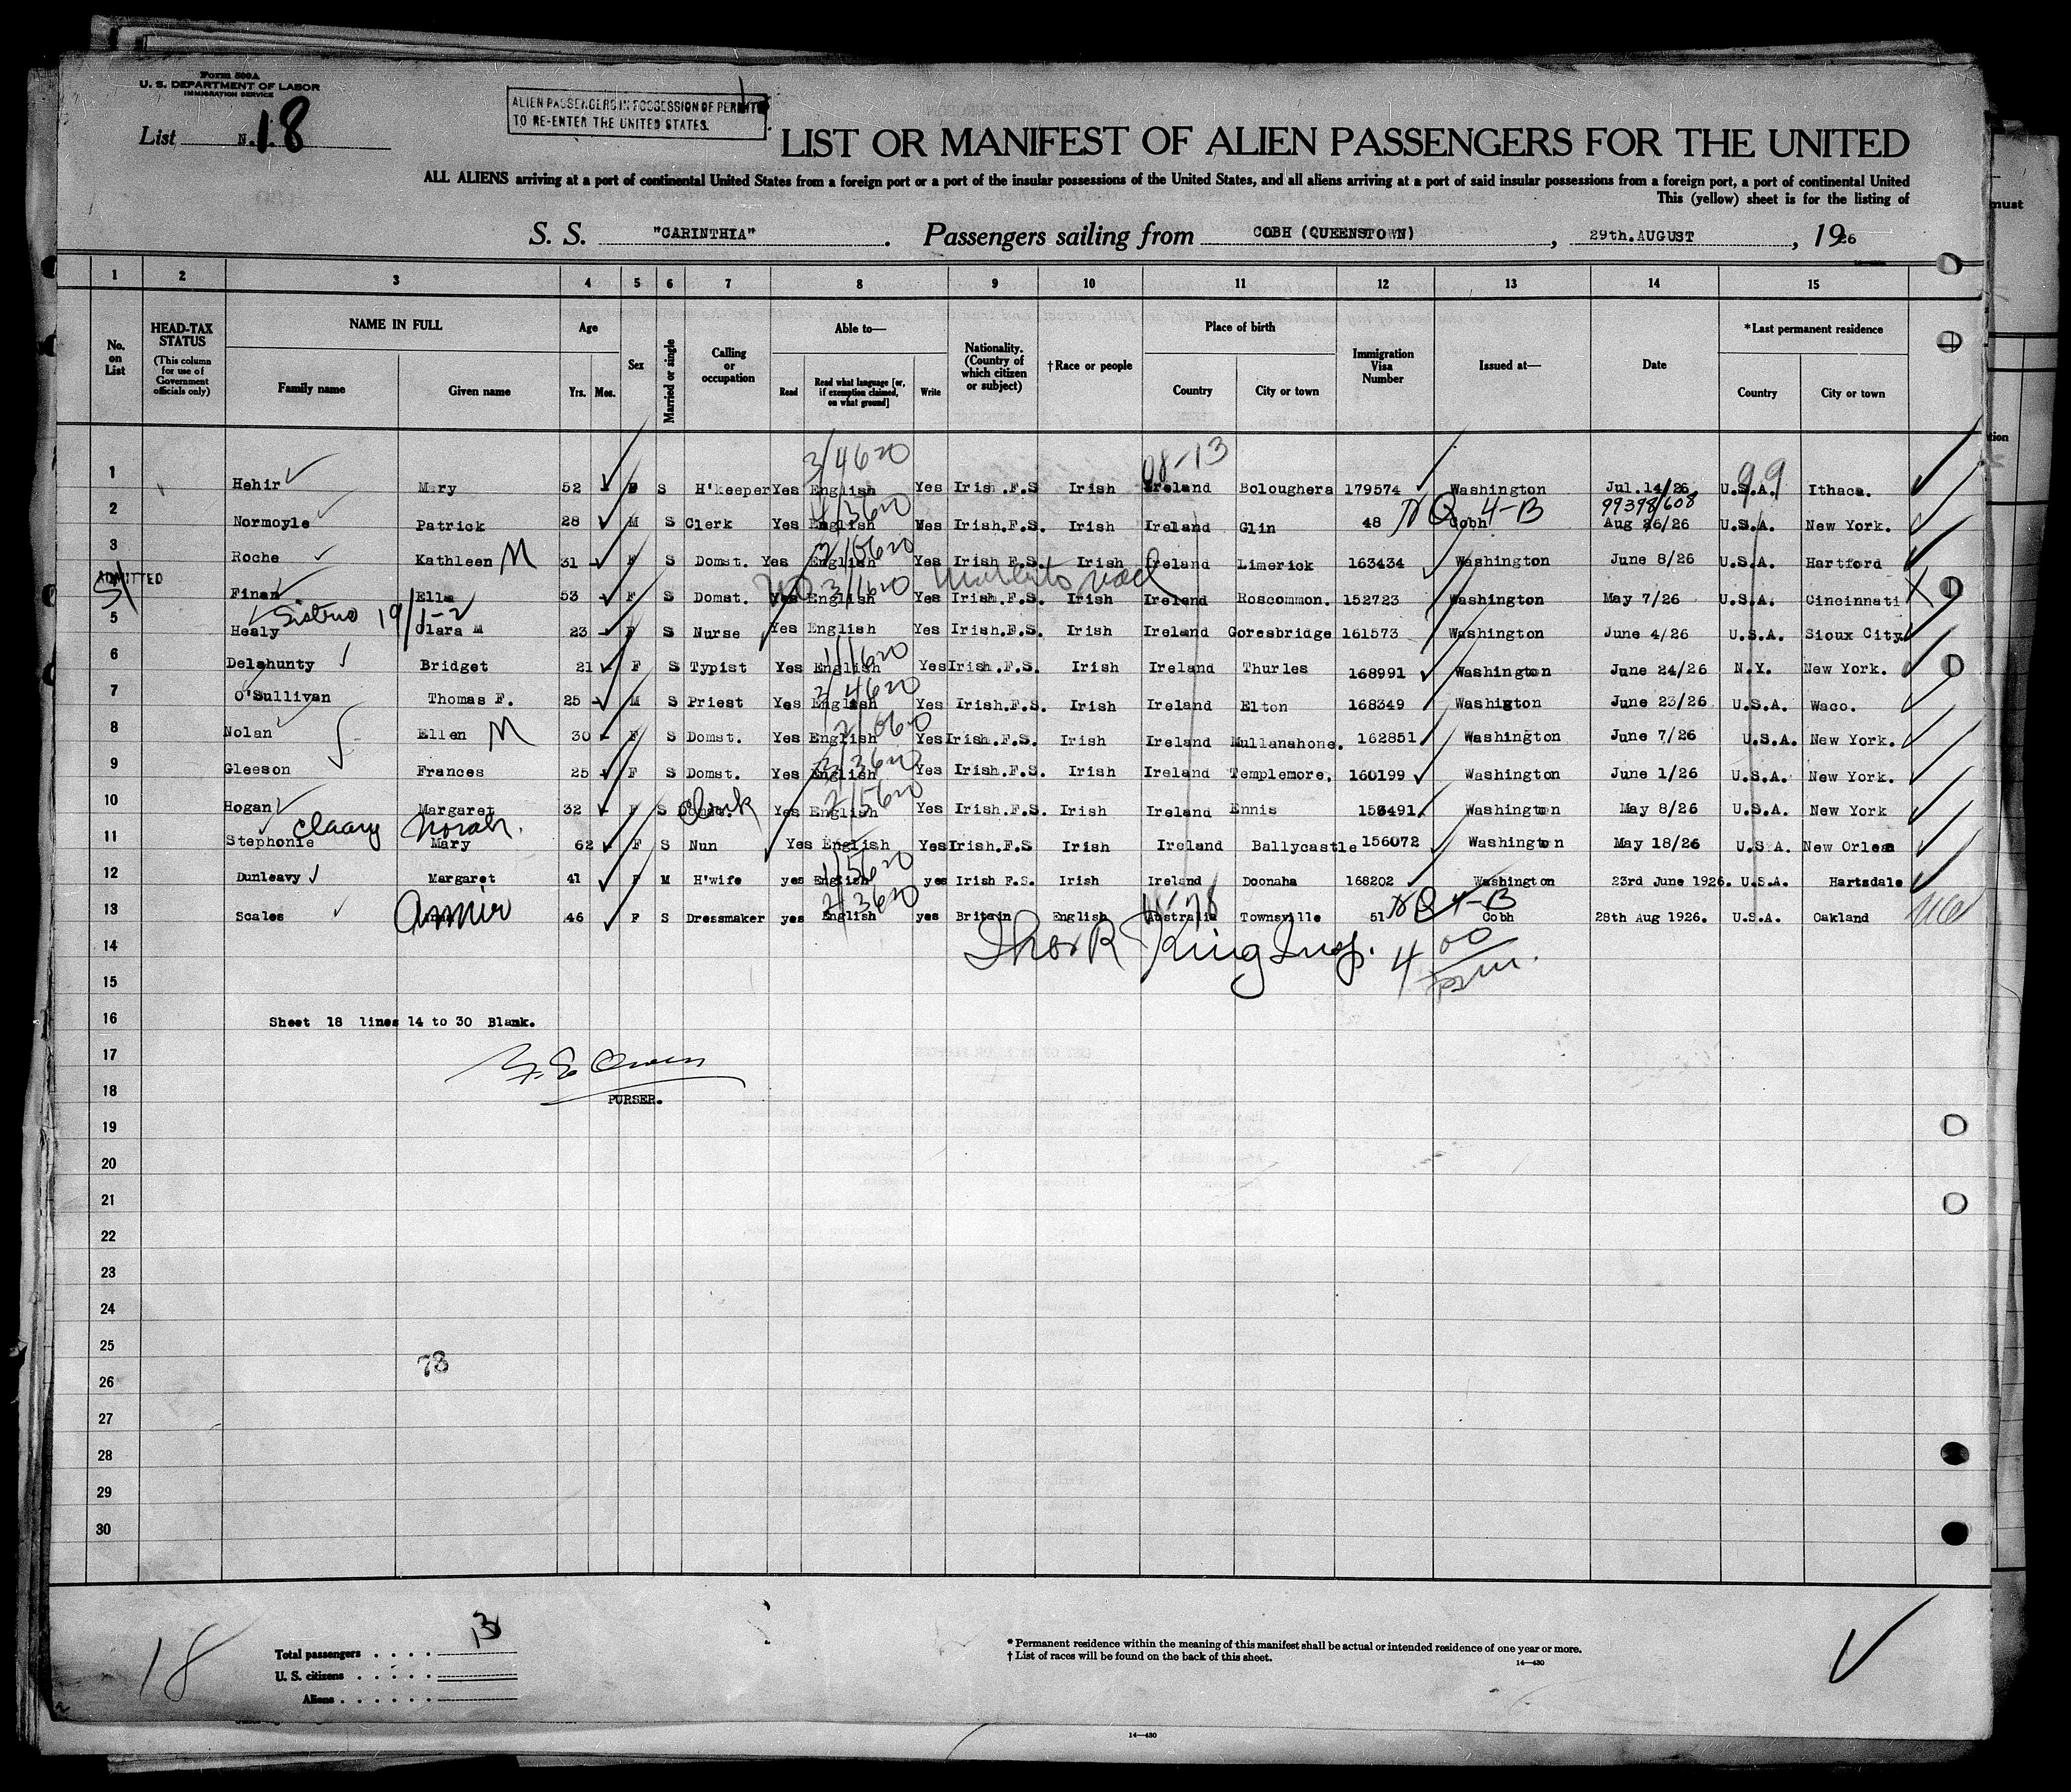 Form 500A
U. S. DEPARTMENT OF LABOR
IMMIGRATION SERVICE
List No. 18
ALIEN PASSENGERS IN POSSESSION OF PERMITS
TO RE-ENTER THE UNITED STATES.
LIST OR MANIFEST OF ALIEN PASSENGERS FOR THE UNITED
ALL ALIENS arriving at a port of continental United States from a foreign port or a port of the insular possessions of the United States, and all aliens arriving at a port of said insular possessions from a foreign port, a port of continental United
This (yellow) sheet is for the listing of
S. S. "CARINTHIA". Passengers sailing from COBH (QUEENSTOWN), 29th.AUGUST, 1926
1 2 3 4 5 6 7 8 9 10 11 12 13 14 15
No. on List
HEAD-TAX STATUS (This column for use of Government officials only)
NAME IN FULL Family name Given name
Age Yrs. Mos.
Sex
Married or single
Calling or occupation
Able to— Read Read what language [or, if exemption claimed, on what ground] Write
Nationality. (Country of which citizen or subject)
†Race or people
Place of birth Country City or town
Immigration Visa Number
Issued at—
Date
*Last permanent residence Country City or town
3/4620 08-13 99
1 Hehir Mary 52 F S H'keeper Yes English Yes Irish.F.S Irish Ireland Boloughera 179574 Washington Jul.14/26 U.S.A. Ithaca.
99398/608
2 Normoyle Patrick 28 M S Clerk Yes English Yes Irish.F.S. Irish Ireland Glin 48 NQ 4-B Cobh Aug 26/26 U.S.A. New York.
3 Roche Kathleen M 31 F S Domst. Yes English Yes Irish F.S. Irish Ireland Limerick 163434 Washington June 8/26 U.S.A. Hartford
ADMITTED
4 Finan Ella 53 F S Domst. Yes English Yes Irish.F.S. Irish Ireland Roscommon. 152723 Washington May 7/26 U.S.A. Cincinnati
5 Healy Clara M 23 F S Nurse Yes English Yes Irish.F.S. Irish Ireland Goresbridge 161573 Washington June 4/26 U.S.A. Sioux City
6 Delahunty Bridget 21 F S Typist Yes English Yes Irish.F.S. Irish Ireland Thurles 168991 Washington June 24/26 N.Y. New York.
7 O'Sullivan Thomas F. 25 M S Priest Yes English Yes Irish.F.S. Irish Ireland Elton 168349 Washington June 23/26 U.S.A. Waco.
8 Nolan Ellen M 30 F S Domst. Yes English Yes Irish.F.S. Irish Ireland Mullanahone. 162851 Washington June 7/26 U.S.A. New York.
9 Gleeson Frances 25 F S Domst. Yes English Yes Irish.F.S. Irish Ireland Templemore, 160199 Washington June 1/26 U.S.A. New York.
10 Hogan Margaret 32 F S Domst. Clerk Yes English Yes Irish.F.S. Irish Ireland Ennis 153491 Washington May 8/26 U.S.A. New York
Norah
11 Stephonie Mary 62 F S Nun Yes English Yes Irish.F.S Irish Ireland Ballycastle 156072 Washington May 18/26 U.S.A New Orlea
12 Dunleavy Margaret 41 F M H'wife yes English yes Irish F.S. Irish Ireland Doonaha 168202 Washington 23rd June 1926. U.S.A. Hartsdale
13 Scales Annie 46 F S Dressmaker yes English yes Britain English Australia Townsville 51 NQ 4-B Cobh 28th Aug 1926. U.S.A. Oakland
14
King Insp. 4 00
15
16 Sheet 18 lines 14 to 30 Blank.
17
18 PURSER.
19
20
21
22
23
24
25
78
26
27
28
29
30
18
Total passengers . . . . 13
U. S. citizens . . . . .
Aliens . . . . . .
* Permanent residence within the meaning of this manifest shall be actual or intended residence of one year or more.
† List of races will be found on the back of this sheet.
14—430
14—430